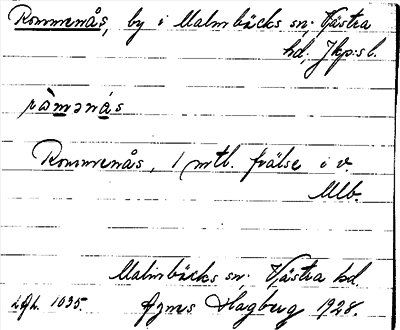 Rommenås, by i Malmbäcks sn; Västra
hd, Jkp:s l.
ràmənás
Rommenås, 1 mtl. frälse i v.
Mlb.
Malmbäcks sn; Västra hd.
Agnes Hagberg 1928.
1035.